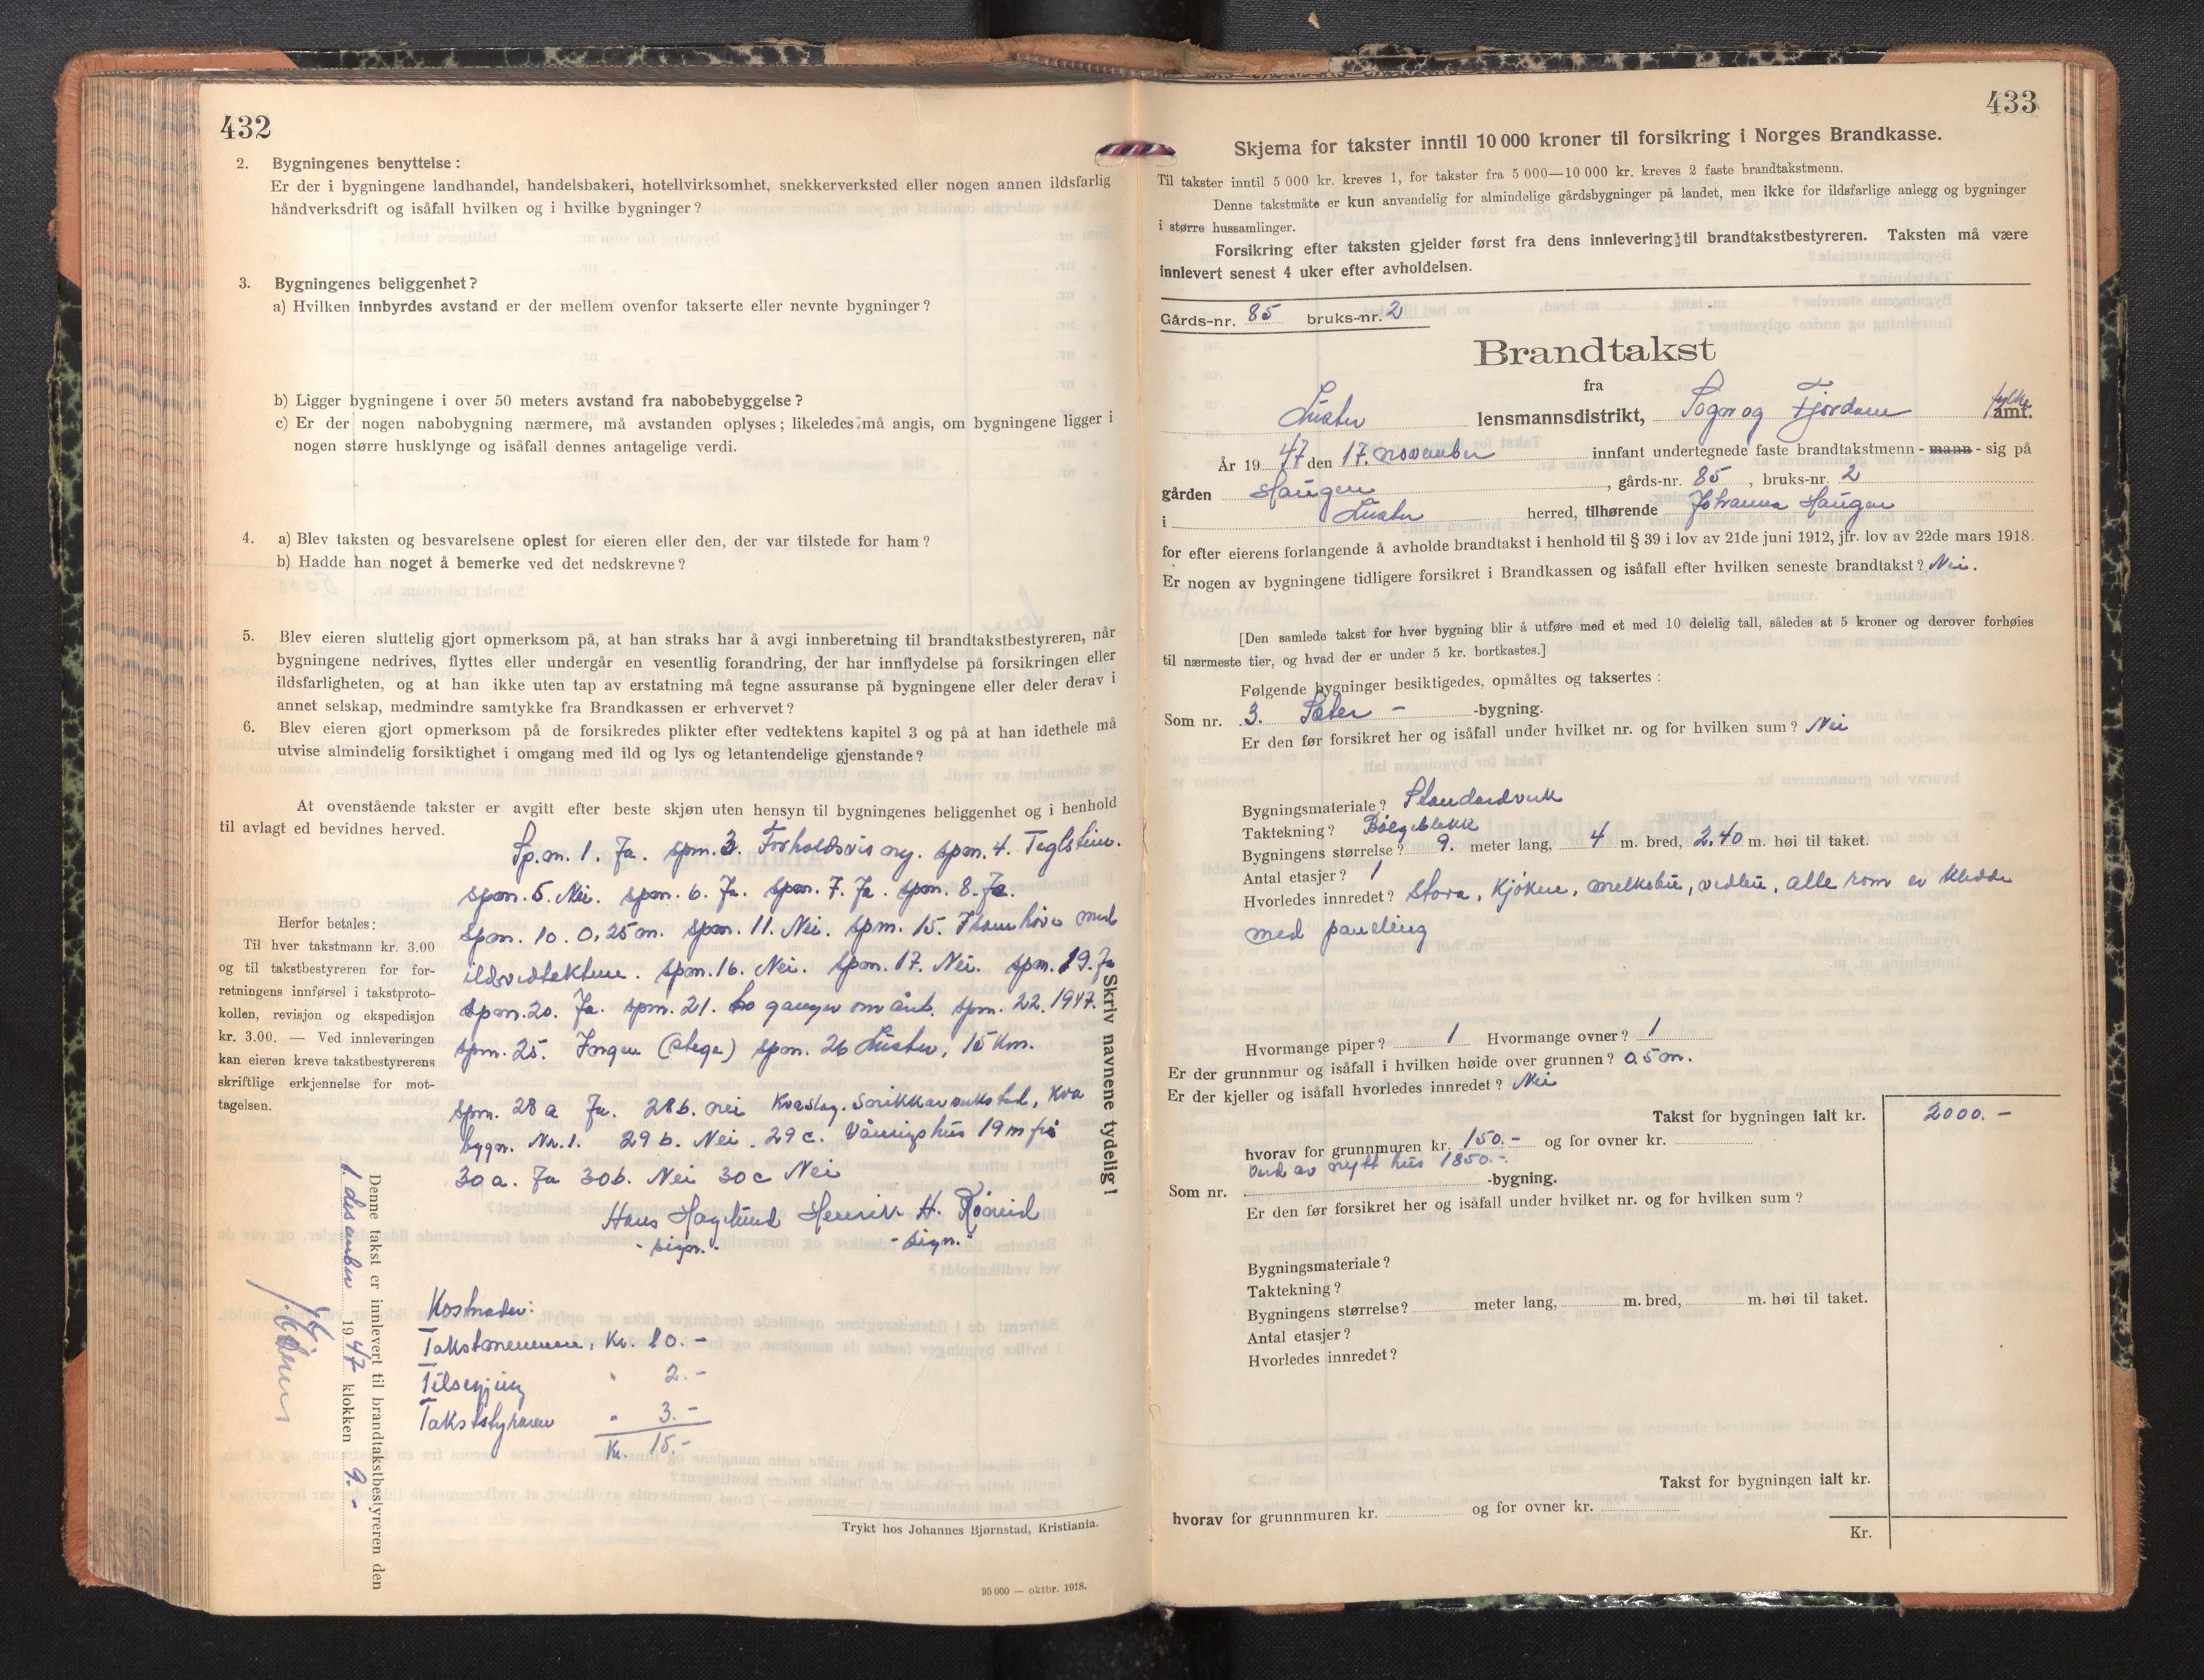 432
2. Bygningenes benyttelse :
Er der i bygningene landhandel, handelsbakeri, hotellvirksomhet, snekkerverksted eller nogen annen ildsfarlig
håndverksdrift og isåfall hvilken og i hvilke bygninger ?
3. Bygningenes beliggenhet ?
a) Hvilken innbyrdes avstand er der mellem ovenfor takserte eller nevnte bygninger ?
b) Ligger bygningene i over 50 meters avstand fra nabobebyggelse ?
c) Er der nogen nabobygning nærmere, må avstanden oplyses ; likeledes må angis, om bygningene ligger i
nogen større husklynge og isåfall dennes antagelige verdi.
4. a) Blev taksten og besvarelsene oplest for eieren eller den, der var tilstede for ham ?
b) Hadde han noget å bemerke ved det nedskrevne ?
5. Blev eieren sluttelig gjort opmerksom på, at han straks har å avgi innberetning til brandtakstbestyreren, når
bygningene nedrives, flyttes eller undergår en vesentlig forandring, der har innflydelse på forsikringen eller
ildsfarligheten, og at han ikke uten tap av erstatning må tegne assuranse på bygningene eller deler derav i
annet selskap, medmindre samtykke fra Brandkassen er erhvervet ?
6. Blev eieren gjort opmerksom på de forsikredes plikter efter vedtektens kapitel 3 og på at han idethele må
utvise almindelig forsiktighet i omgang med ild og lys og letantendelige gjenstande ?
At ovenstående takster er avgitt efter beste skjøn uten hensyn til bygningenes beliggenhet og i henhold
til avlagt ed bevidnes herved.
Sp.m. 1. Ja. spm. 3. Forholdsvis ny. spm. 4. Teglstein.
spm. 5. Nei. spm. 6. Ja. spm. 7. Ja. spm. 8. Ja.
spm. 10. 0,25 m. spm. 11. Nei. spm. 15. med
spm. 16. Nei. spm. 17. Nei. spm. 19. Ja
spm. 20. Ja. spm. 21. to ganger om året. spm. 22. 1947.
spm. 25. (Stege) spm. 26 Luster, 15 km.
spm. 28 a Ja. 28 b. nei kva
bygn. Nr. 1. 29 b. Nei. 29 c. Våningshus 19 m frå
30 a. Ja 30 b. Nei 30 c Nei
Hans Haglund Henrik H. Røneid
- sign. - - sign. -
Herfor betales :
Til hver takstmann kr. 3.00
og til takstbestyreren for for-
retningens innførsel i takstproto-
kollen, revisjon og ekspedisjon
kr. 3.00. — Ved innleveringen
kan eieren kreve takstbestyrerens
skriftlige erkjennelse for mot-
tagelsen.
Skriv navnene tydelig !
Denne takst er innlevert til brandtakstbestyreren den
1. desember 1947 klokken 9.-
Kostnader:
Takstmennene, Kr. 10. -
Tilsegjing " 2. -
Takststyraren " 3. -
Kr. 15.-
Trykt hos Johannes Bjørnstad, Kristiania.
95 000 — oktbr. 1918.
433
Skjema for takster inntil 10 000 kroner til forsikring i Norges Brandkasse.
Til takster inntil 5 000 kr. kreves 1, for takster fra 5 000—10 000 kr. kreves 2 faste brandtakstmenn.
Denne takstmåte er kun anvendelig for almindelige gårdsbygninger på landet, men ikke for ildsfarlige anlegg og bygninger
i større hussamlinger.
Forsikring efter taksten gjelder først fra dens innlevering til brandtakstbestyreren. Taksten må være
innlevert senest 4 uker efter avholdelsen.
Gårds-nr. 85 bruks-nr. 2
Brandtakst
fra
Luster lensmannsdistrikt, Sogn og Fjordane fylke amt.
År 1947 den 17. november innfant undertegnede faste brandtakstmenn - mann - sig på
gården Haugen, gårds-nr. 85, bruks-nr. 2
i Luster herred, tilhørende Johanna Haugen
for efter eierens forlangende å avholde brandtakst i henhold til § 39 i lov av 21de juni 1912, jfr. lov av 22de mars 1918.
Er nogen av bygningene tidligere forsikret i Brandkassen og isåfall efter hvilken seneste brandtakst ? Nei.
[Den samlede takst for hver bygning blir å utføre med et med 10 delelig tall, således at 5 kroner og derover forhøies
til nærmeste tier, og hvad der er under 5 kr. bortkastes.]
Følgende bygninger besiktigedes, opmåltes og taksertes :
Som nr. 3. Sæter - -bygning.
Er den før forsikret her og isåfall under hvilket nr. og for hvilken sum ? Nei
Bygningsmateriale ? Standardverk
Taktekning ? Bølgeblekk
Bygningens størrelse ? 9. meter lang, 4 m. bred, 2,40 m. høi til taket.
Antal etasjer ? 1
Hvorledes innredet ? Stova, kjøken, melkebu, vedbu, alle rom er kledde
med paneling
Hvormange piper ? 1 Hvormange ovner ? 1
Er der grunnmur og isåfall i hvilken høide over grunnen ? 0.5 m.
Er der kjeller og isåfall hvorledes innredet ? Nei
Takst for bygningen ialt kr. 2000. -
hvorav for grunnmuren kr. 150. - og for ovner kr.
Verd av nytt hus 1850.-
Som nr. -bygning.
Er den før forsikret her og isåfall under hvilket nr. og for hvilken sum ?
Bygningsmateriale ?
Taktekning ?
Bygningens størrelse ? meter lang, m. bred, m. høi til taket.
Antal etasjer ?
Hvorledes innredet ?
Takst for bygningen ialt kr.
hvorav for grunnmuren kr. og for ovner kr.
Kr.